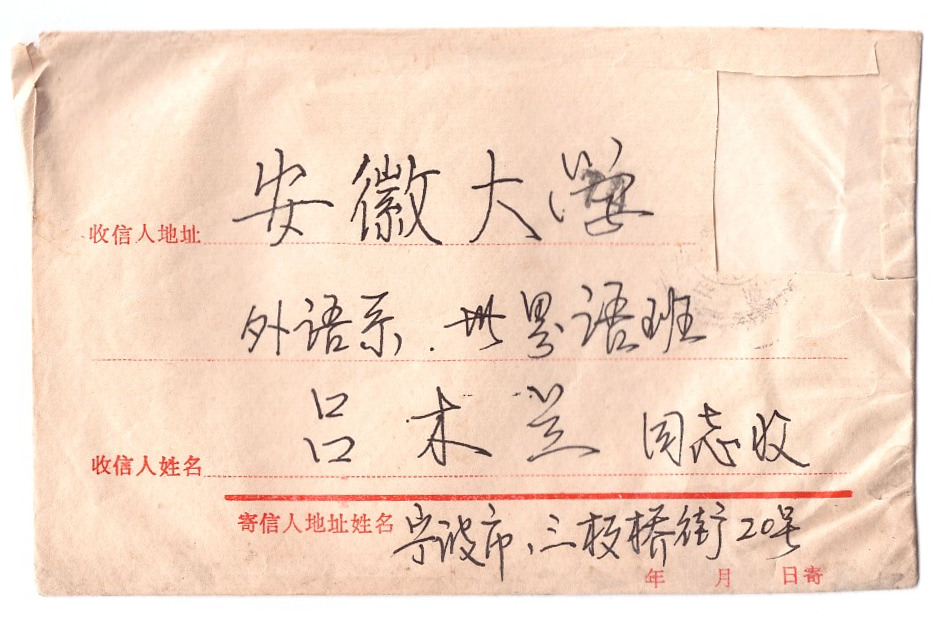 收信人地址 安徽大学
外语系.世界语班
收信人姓名 吕木兰 同志收
寄信人地址姓名 宁波市、三板桥街20号
年 月 日寄